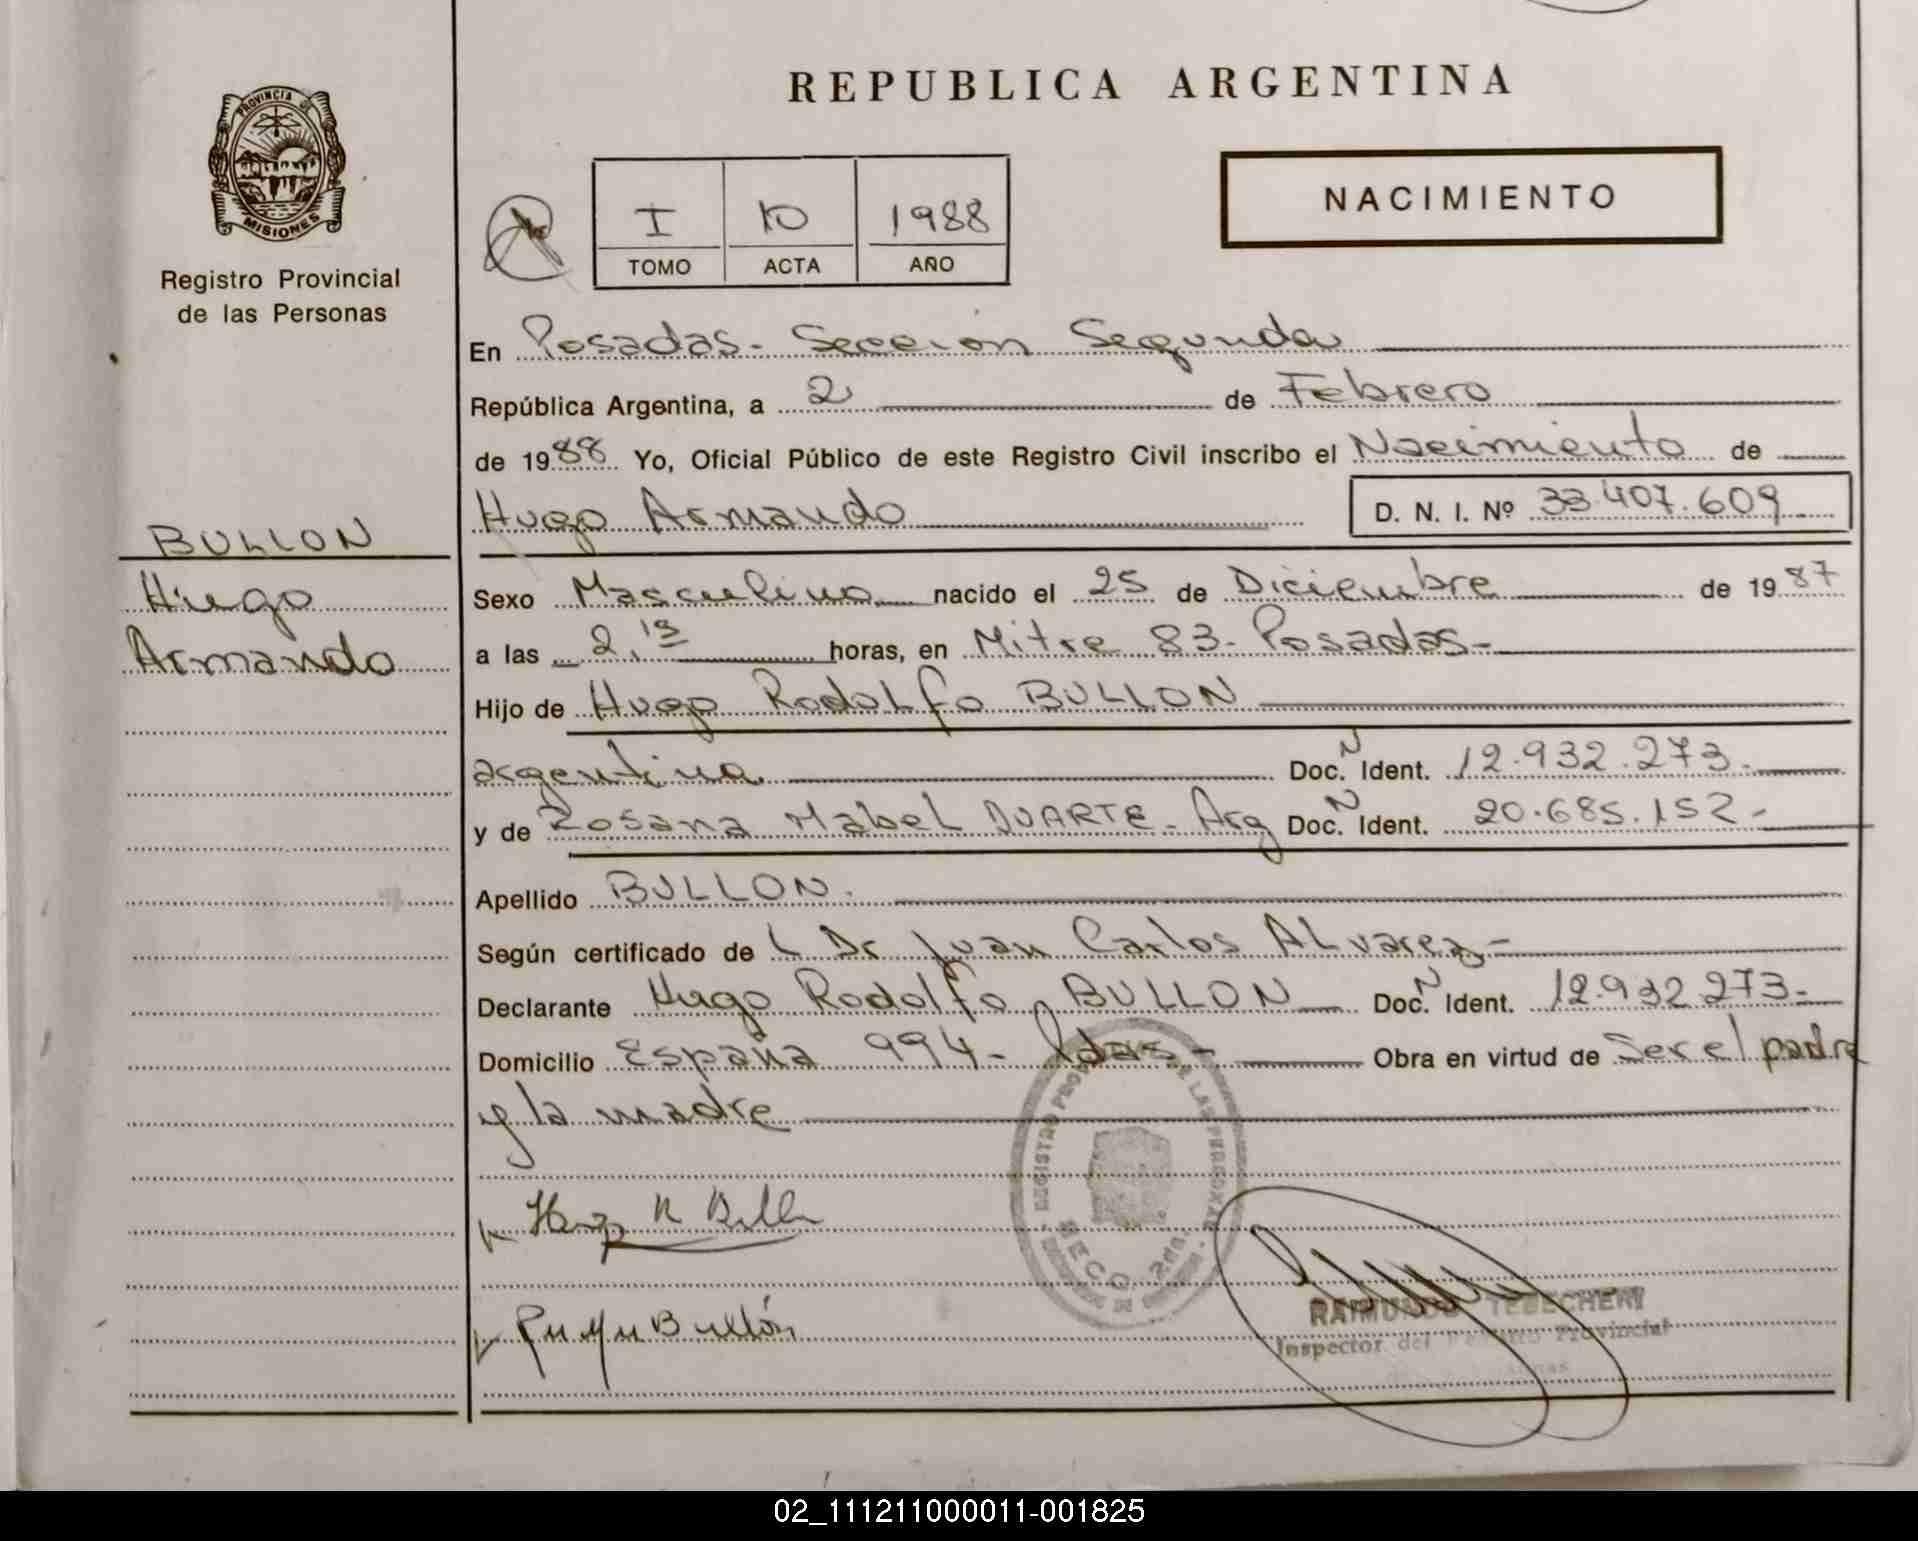 REPUBLICA ARGENTINA
PROVINCIA DE
MISIONES
Registro Provincial
de las Personas
NACIMIENTO
I 10 1988
TOMO ACTA AÑO
En Posadas - Seccion Segunda
República Argentina, a 2 de Febrero
de 1988 Yo, Oficial Público de este Registro Civil inscribo el Nacimiento de
Hugo Armando D. N. I. Nº 33.407.609
BULLON
Hugo
Armando
Sexo Masculino nacido el 25 de Diciembre de 1987
a las 2,15 horas, en Mitre 83 - Posadas -
Hijo de Hugo Rodolfo BULLON
argentina Doc. N Ident. 12.932.273.
y de Rosana Mabel DUARTE - Arg Doc. N Ident. 20.685.152 -
Apellido BULLON.
Según certificado de L Dr Juan Carlos Alvarez -
Declarante Hugo Rodolfo BULLON Doc. N Ident. 12.932.273 -
Domicilio España 994 - Pdas - Obra en virtud de Ser el padre
y la madre
REGISTRO PROV DE LAS PERSONAS
SECC. 2da.
Hugo R Bullon
Bullón
RAIMUNDO TEBECHERI
Inspector del Registro Provincial
02_111211000011-001825